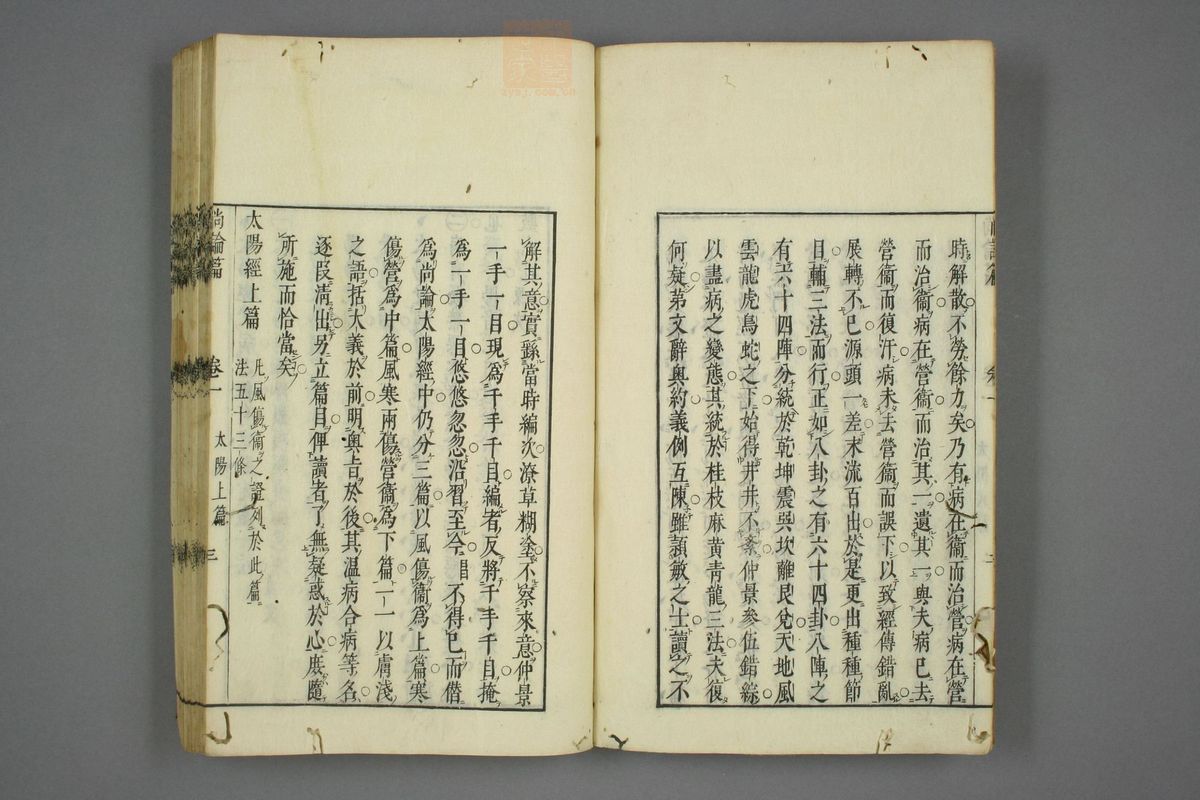 時解散不勞餘力矣乃有病在衞而治營病在營
而治衞病在營衞而治其一遺其一與夫病已去
營衞而復汗病未去營衞而誤下以致經傳錯亂
展轉不已源頭一差末流百出於是更出種種節
目輔三法而行正如八卦之有六十四卦八陣之
有六十四陣分統於乾坤震巽坎離艮兌天地風
雲龍虎鳥蛇之下始得井井不紊仲景參伍錯綜
以盡病之變態其統於桂枝麻黄青龍三法夫復
何疑第文辭奥約義例互陳雖頴敏之士讀之不
解其意實繇當時編次潦草糊塗不察來意仲景
一手一目現為千手千目編者反將千手千目掩
為一手一目悠悠忽忽沿習至今昌不得已而僭
為尚論太陽經中仍分三篇以風傷衞為上篇寒
傷營為中篇風寒兩傷營衞為下篇一一以膚淺
之語括大義於前明奥旨於後其温病合病等名
逐段清出另立篇目俾讀者了無疑惑於心庻隨
所施而恰當矣
太陽經上篇
凡風傷衞之證列於此篇
法五十三條
尚論篇 卷一 太陽上篇 三